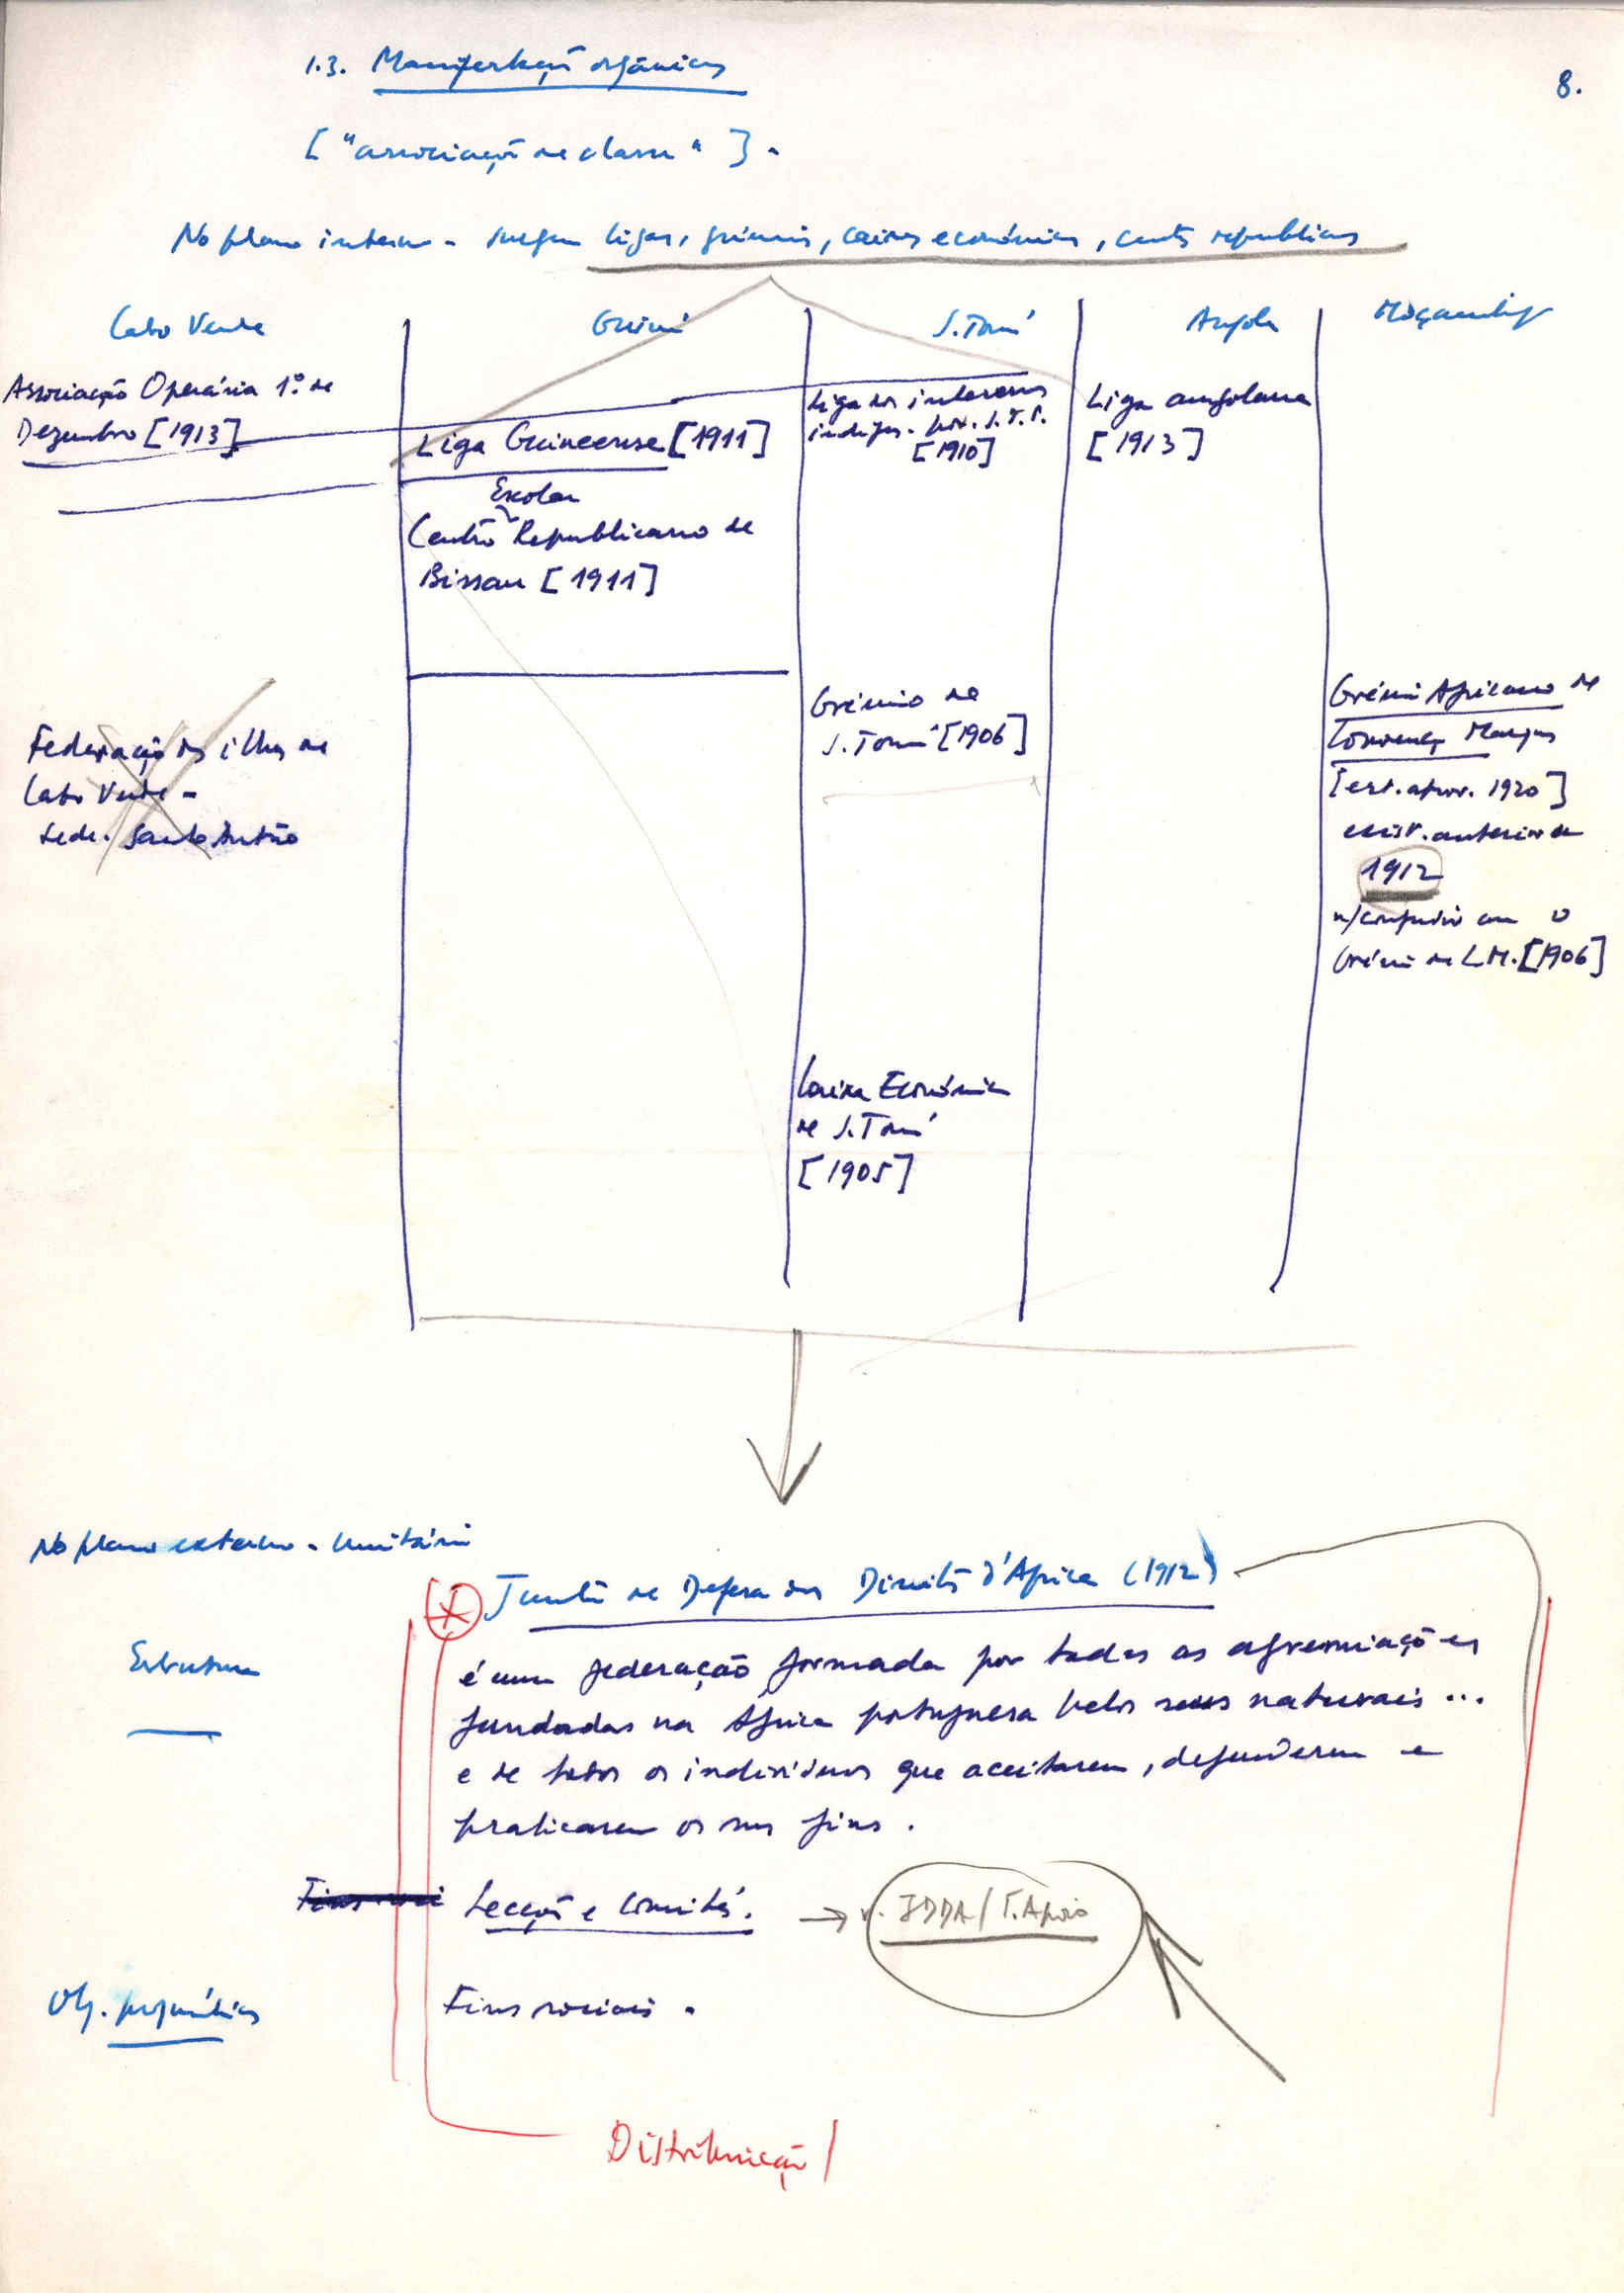 8.
1.3. Manifestações orgânicas
["associação de classe"].
No plano interno - surgem ligas, grémios, caixas económicas, centros republicanos
Cabo Verde
Guiné
S. Tomé
Angola
Moçambique
Associação Operária 1º de
Dezembro [1913]
Liga Guineense [1911]
Escolar
Centro Republicano de
Bissau [1911]
Liga dos interesses
indígs. prov. S.T.P.
[1910]
Liga angolana
[1913]
Federação das ilhas de
Cabo Verde -
sede. Santo Antão
Grémio de
S. Tomé [1906]
Grémio Africano de
Lourenço Marques
[est. aprov. 1920]
exist. anterior a
1912
n/confundir com o
Grémio de L.M. [1906]
Caixa Económica
de S. Tomé
[1905]
No plano externo - unitário
Junta de Defesa dos Direitos d'África (1912)
Estrutura
é uma federação formada por todas as agremiações
fundadas na África portuguesa pelos seus naturais ...
e de todos os indivíduos que aceitarem, defenderem e
praticarem os seus fins.
Fins soci Secções e comités. → v. JDDA/T. Apoio
Obj. programáticos
Fins sociais -
Distribuição/